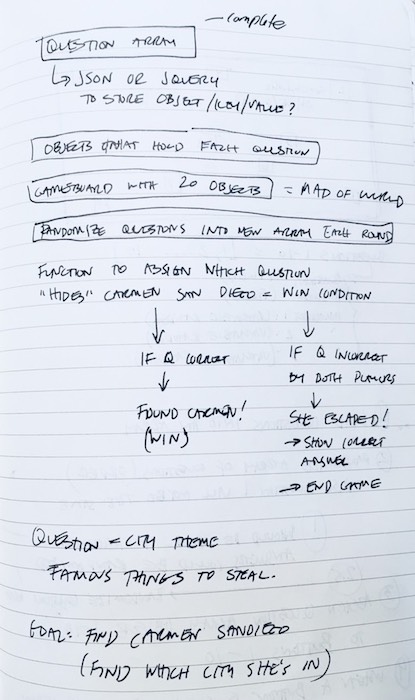 — complete
QUESTION ARRAY
↳ JSON OR JQUERY
TO STORE OBJECT/KEY/VALUE?
OBJECTS THAT HOLD EACH QUESTION
GAMEBOARD WITH 20 OBJECTS = MAP OF WORLD
RANDOMIZE QUESTIONS INTO NEW ARRAY EACH ROUND
FUNCTION TO ASSIGN WHICH QUESTION
"HIDES" CARMEN SAN DIEGO = WIN CONDITION
↓ ↓
IF Q CORRECT
↓
FOUND CARMEN!
(WIN)
IF Q INCORRECT
BY BOTH PLAYERS
↓
SHE ESCAPED!
→ SHOW CORRECT
ANSWER
→ END GAME
QUESTION = CITY THEME
FAMOUS THINGS TO STEAL.
GOAL: FIND CARMEN SANDIEGO
(FIND WHICH CITY SHE'S IN)